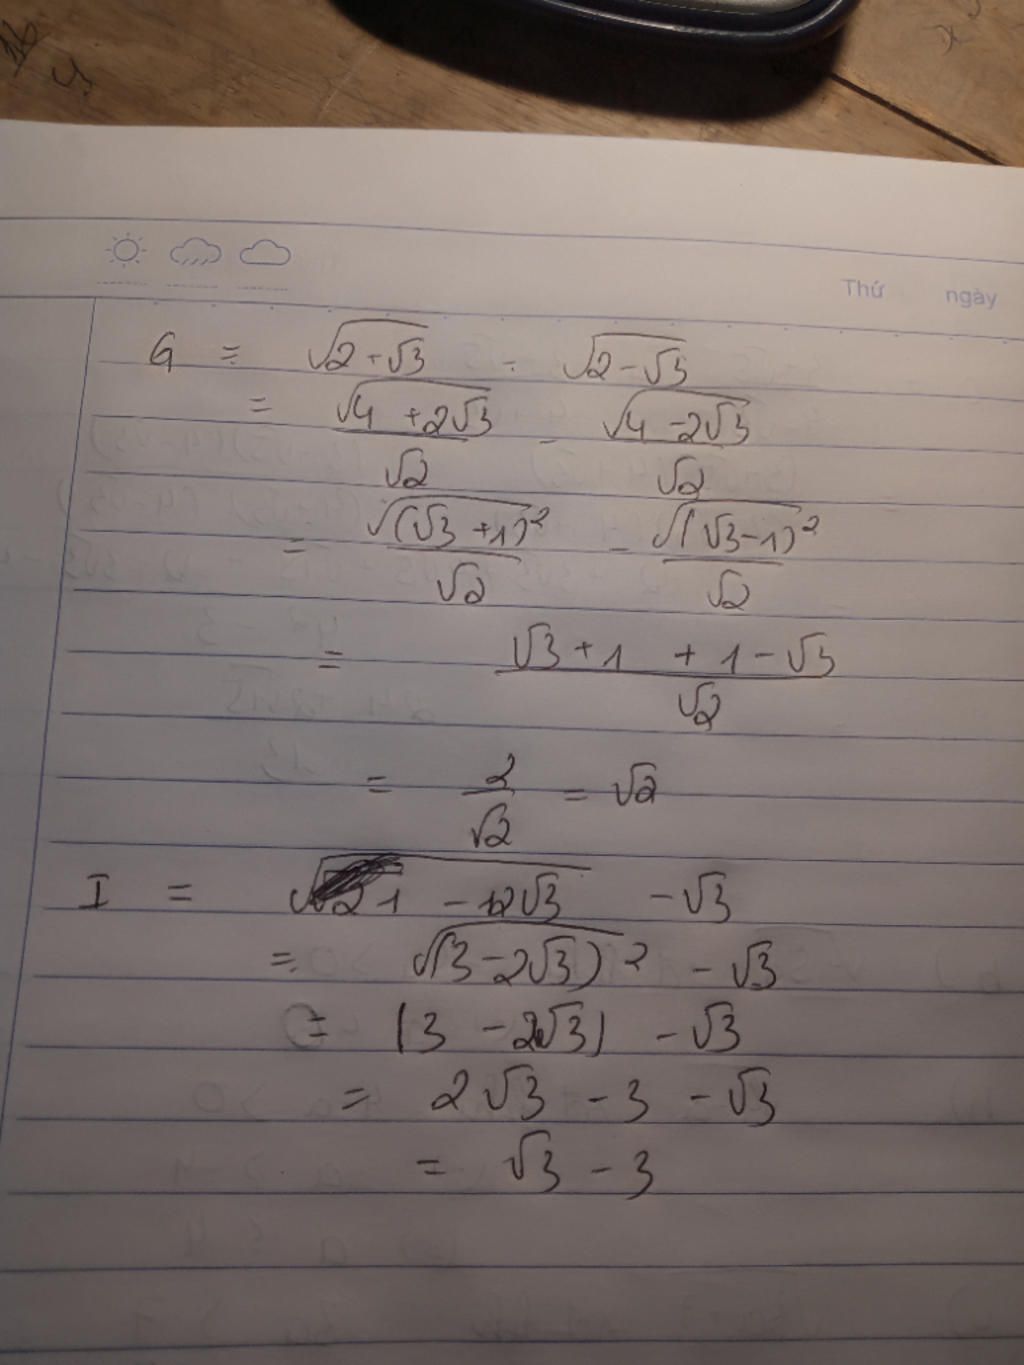 Thứ ngày
G = √(2+√3) - √(2-√3)
= √(4+2√3)/√2 - √(4-2√3)/√2
= √((√3+1)²)/√2 - √((√3-1)²)/√2
= (√3+1 + 1-√3)/√2
= 2/√2 = √2
I = √(21 - 12√3) - √3
= √(3-2√3)² - √3
= |3 - 2√3| - √3
= 2√3 - 3 - √3
= √3 - 3